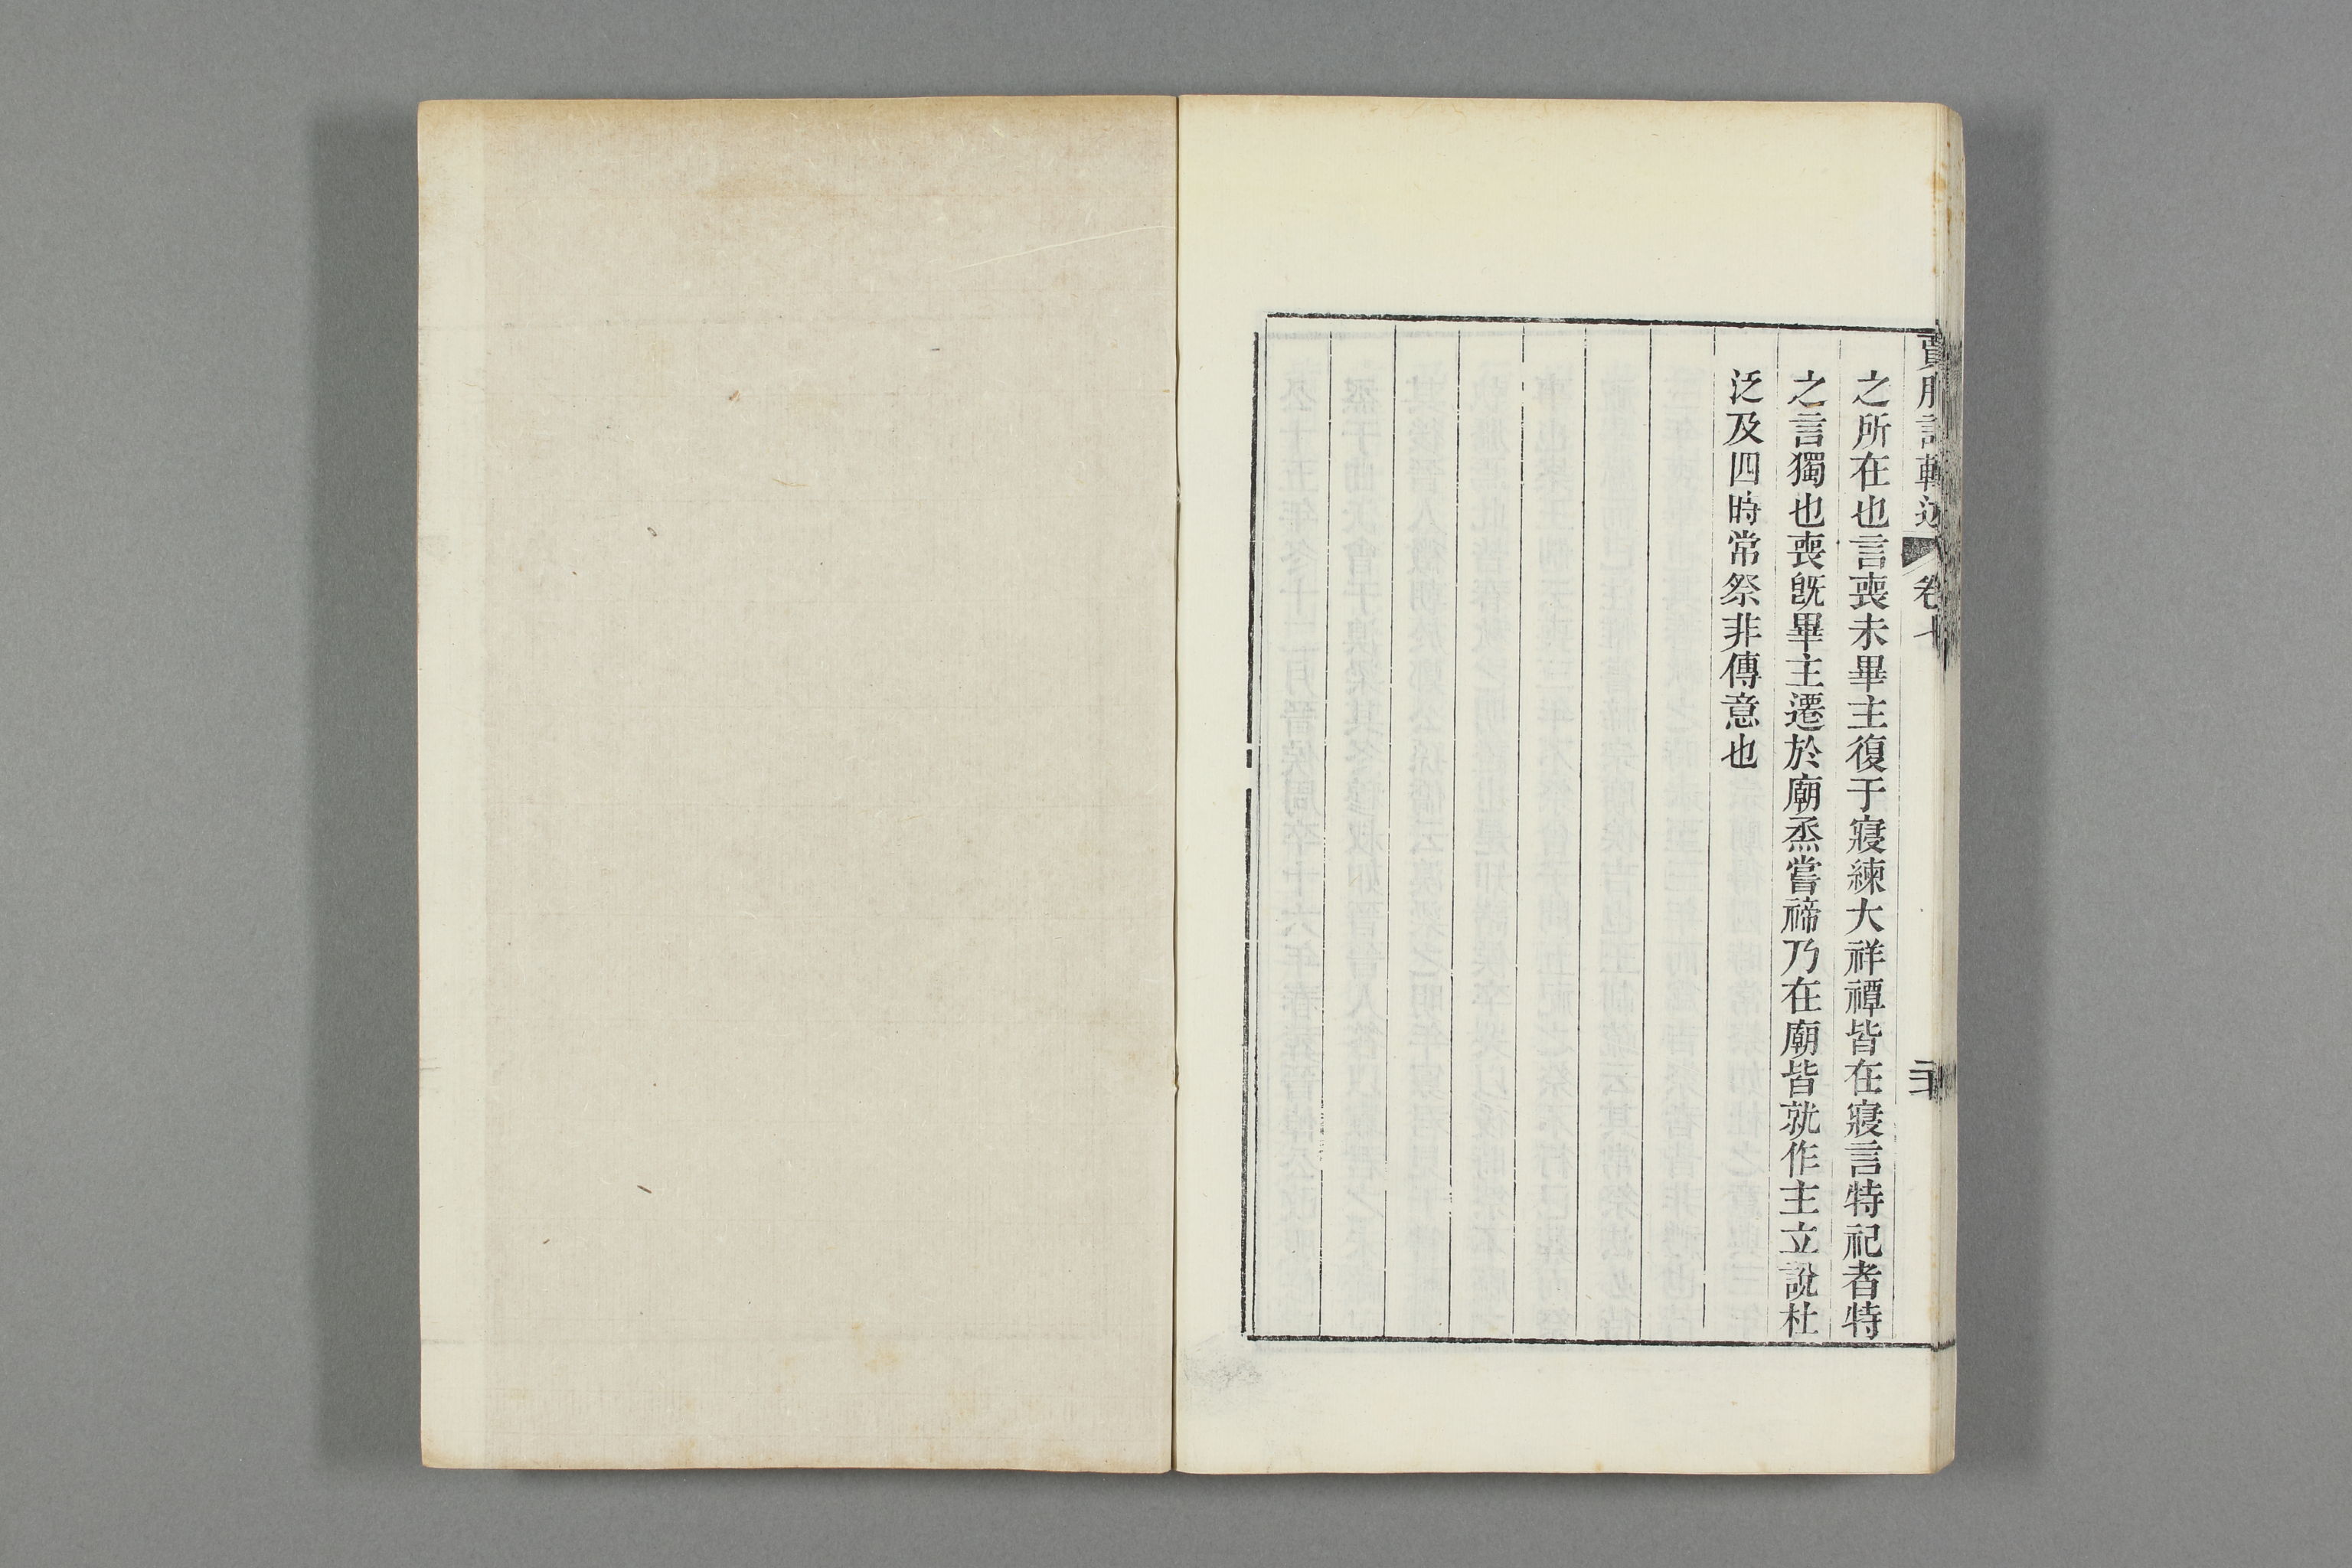 賈服註輯述 卷七
之所在也言喪未畢主復于寢練大祥禫皆在寢言特祀者特
之言獨也喪旣畢主遷於廟烝嘗禘乃在廟皆就作主立說杜
泛及四時常祭非傳意也